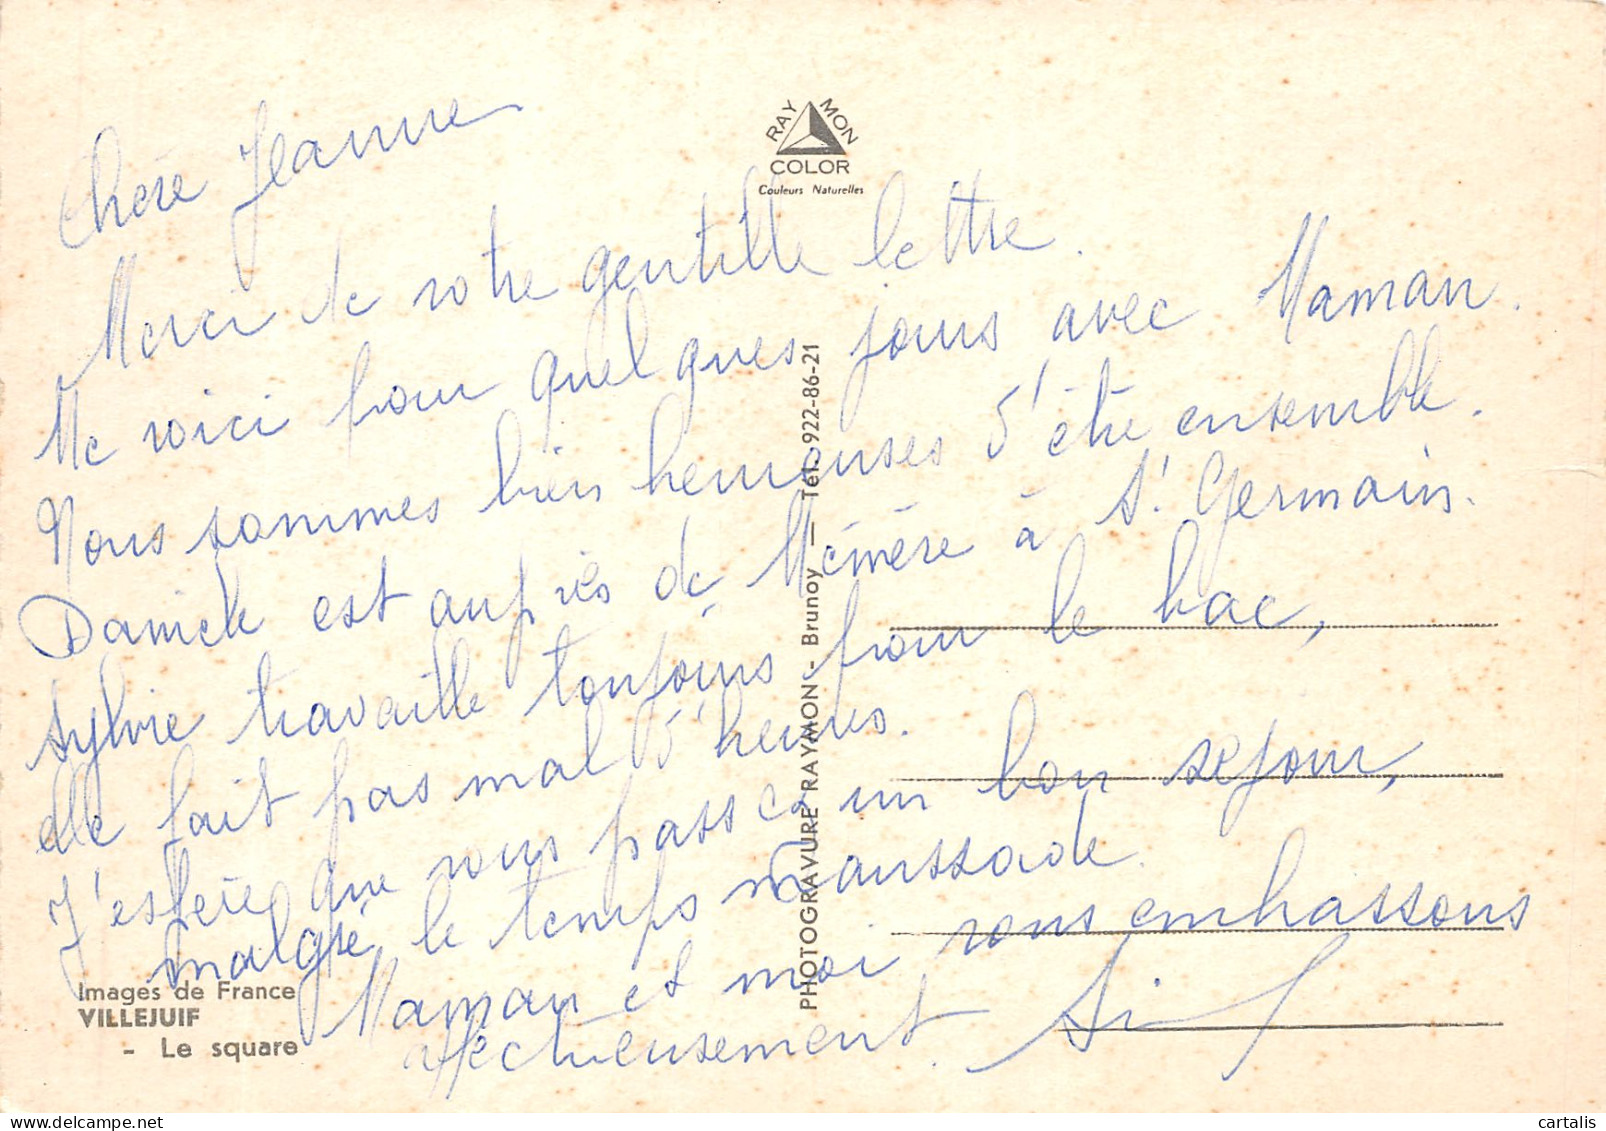 RAYMON
COLOR
Couleurs Naturelles
Chère Jeanne
Merci de votre gentille lettre.
Me voici pour quelques jours avec Maman.
Nous sommes bien heureuses d'être ensemble.
Danièle est auprès de Mémère à St Germain.
Sylvie travaille toujours pour le bac,
elle fait pas mal d'heures.
J'espère que vous passez un bon séjour,
malgré le temps maussade.
Maman et moi vous embrassons
affectueusement.
PHOTOGRAVURE RAYMON - Brunoy — Tél. 922-86-21
Images de France
VILLEJUIF
- Le square
cartalis